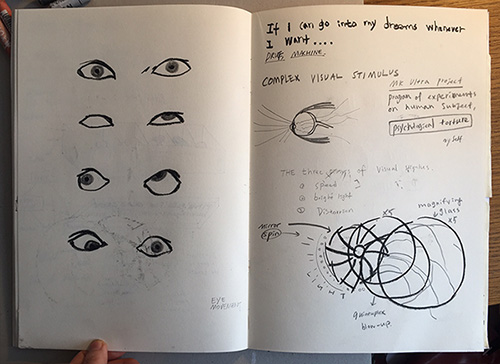 EYE
MOVEMENT
If I can go into my dreams whenever
I want....
DRUG, MACHINE.
COMPLEX VISUAL STIMULUS
MK Ultra project
program of experiments
on human subject,
psychological torture
my self
THE three of Visual
① speed
② bright light
③ Distension
mirror
spin
x5
magnifying
glass
x5
blow-up